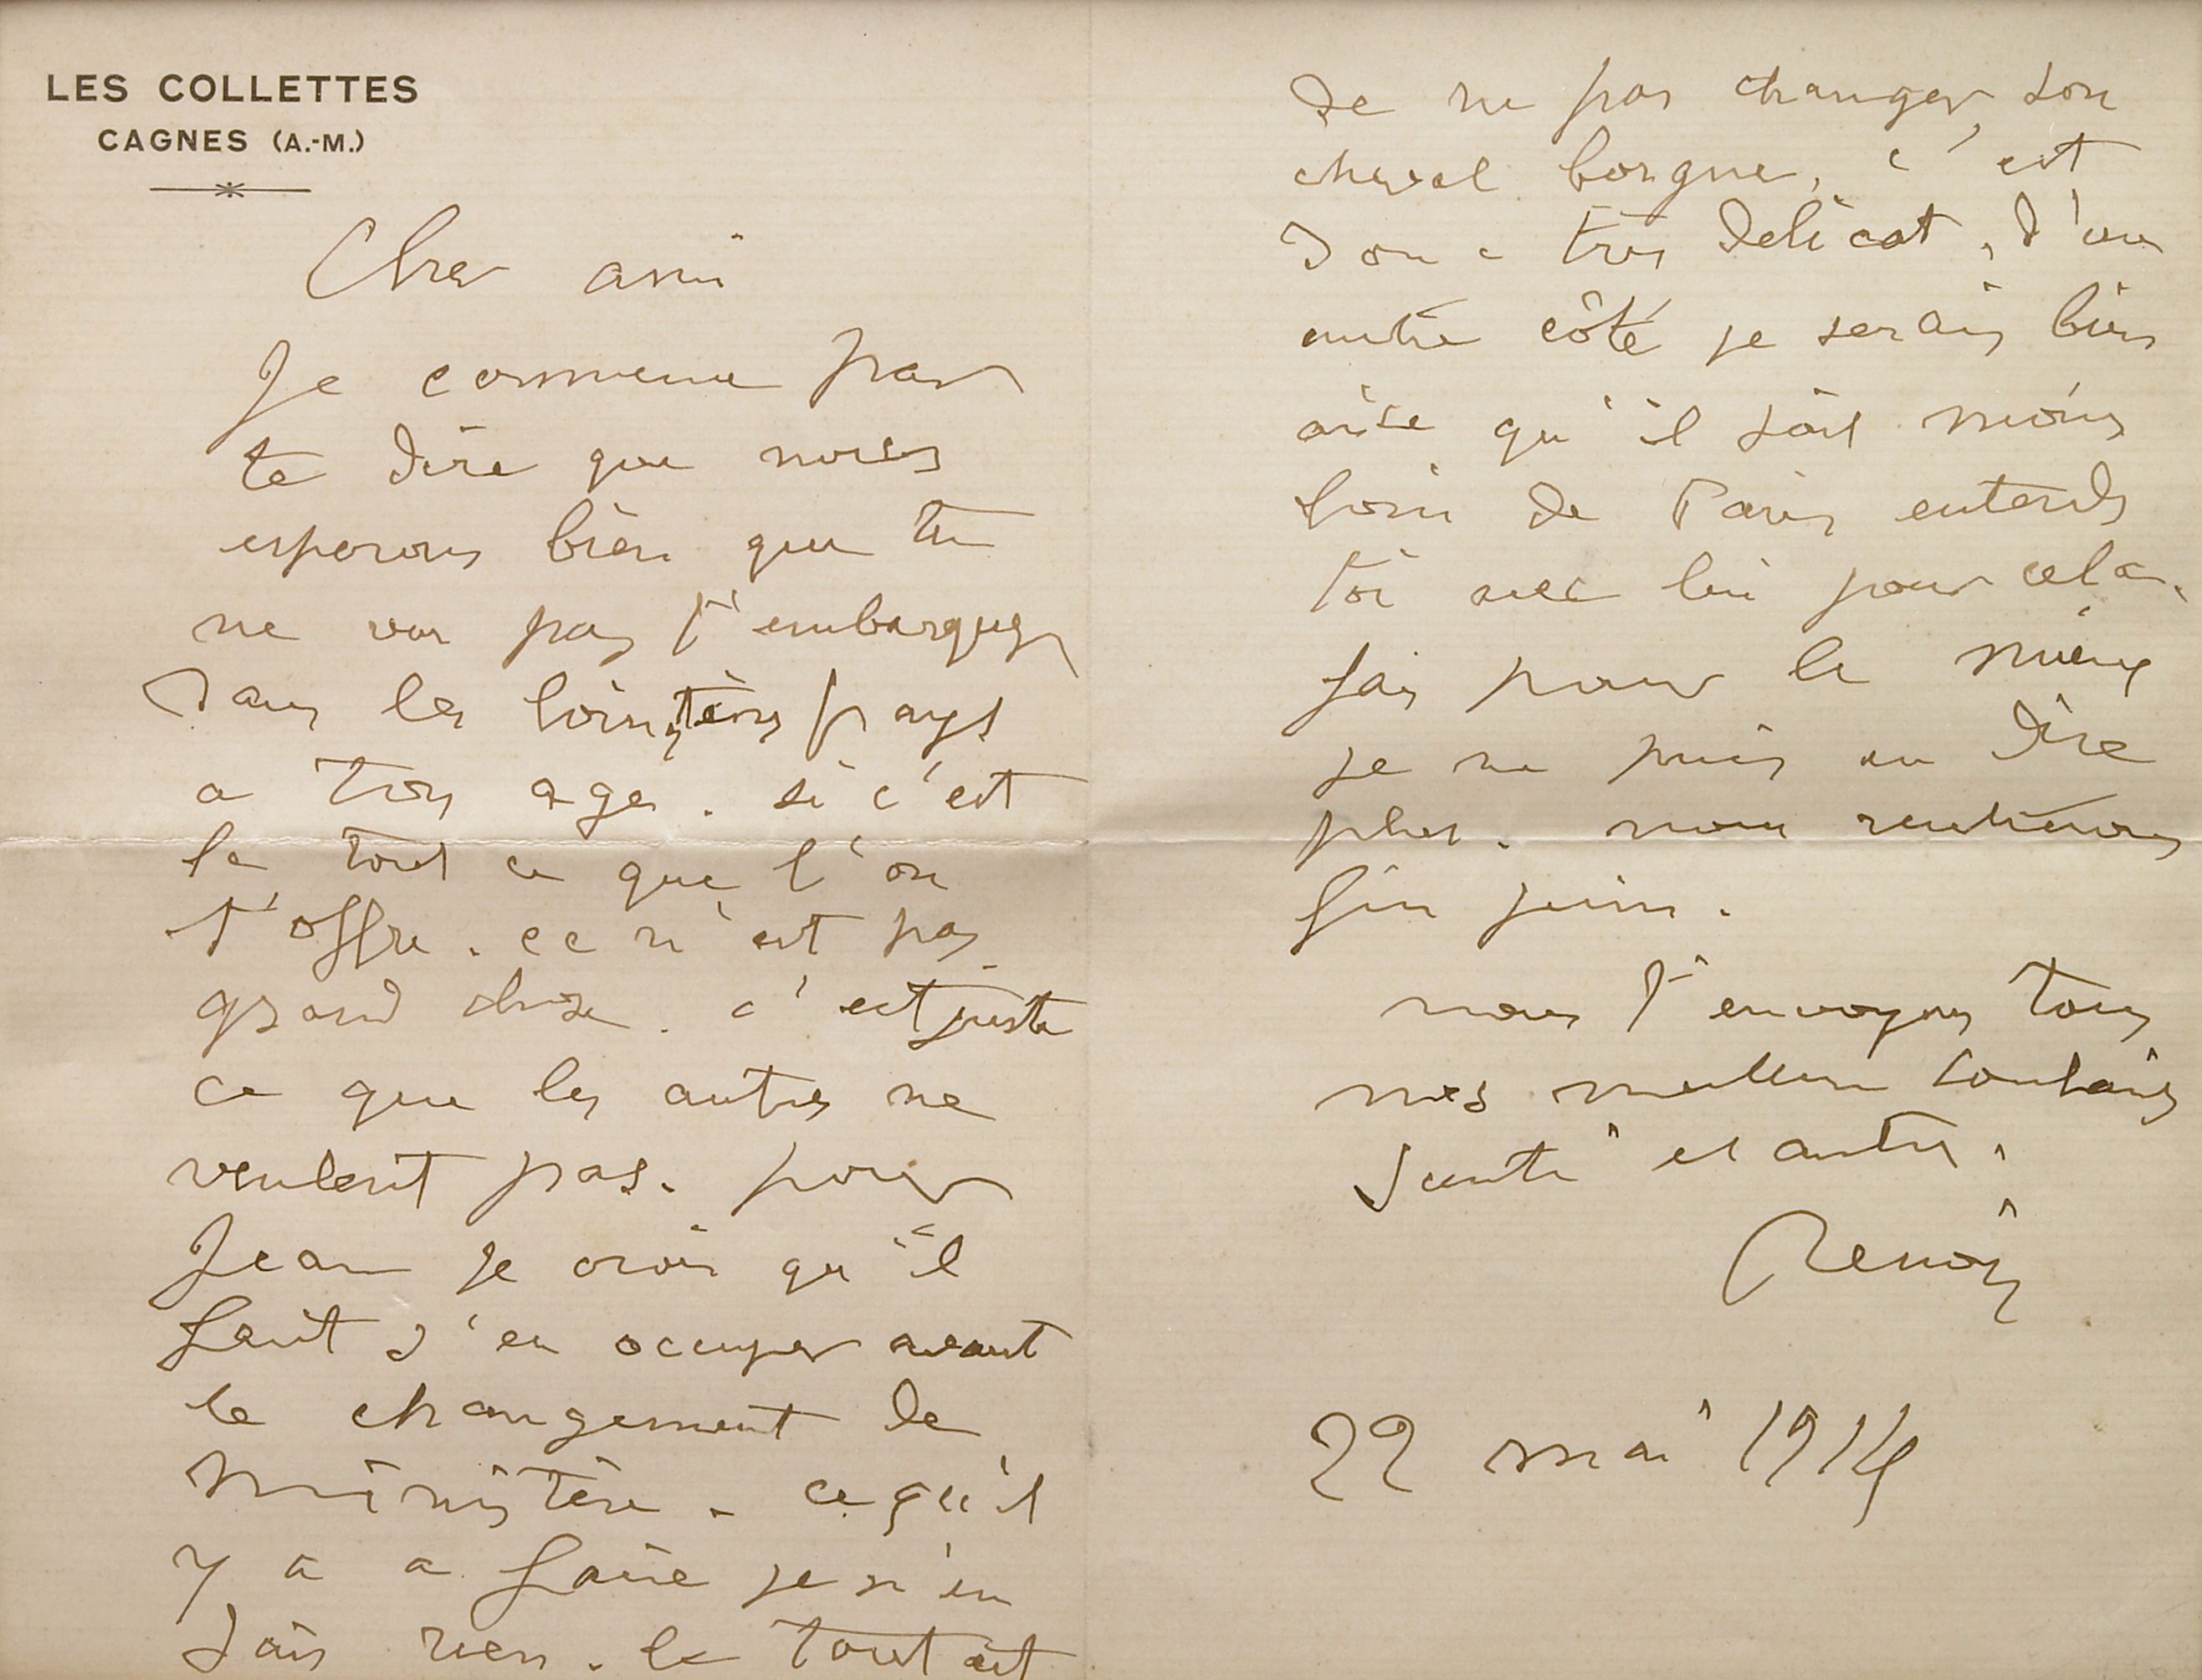 LES COLLETTES
CAGNES (A.-M.)
Cher ami
Je commence par
te dire que nous
esperons bien que tu
ne vas pas t'embarquer
dans les lointins pays
a ton age. si c'est
la tout ce que l'on
t'offre. ce n'est pas
grand chose. c'est juste
ce que les autres ne
veulent pas. pour
Jean je crois qu'il
faut s'en occuper avant
le changement de
ministère. ce qu'il
y a a faire je n'en
sais rien. le tout est
de ne pas changer son
cheval borgne, c'est
donc très délicat, d'un
autre côté je serais bien
aise qu'il soit moins
loin de Paris entends
toi avec lui pour cela.
fais pour le mieux
je ne puis en dire
plus. nous rentrerons
fin juin.
nous t'envoyons tous
nos meilleurs souhaits
santé et autres.
Renoir
22 mai 1914